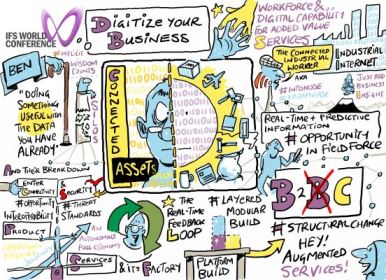 IFS WORLD
CONFERENCE
DIGITIZE YOUR
BUSINESS
WORKFORCE &
DIGITAL CAPABILITY
FOR ADDED VALUE
SERVICES
BEN
WISDOM
COUNTS
"DOING
SOMETHING
USEFUL WITH
THE DATA
YOU HAVE
ALREADY."
SILOS
CONNECTED
ASSETS
THE CONNECTED
INDUSTRIAL
WORKER
AKA
INDUSTRIAL
INTERNET
JUST ADD
BUSINESS
INSIGHT
REAL-TIME + PREDICTIVE
INFORMATION
#OPPORTUNITY
IN FIELD FORCE
AND THEIR BREAKDOWN
CONNECTIVITY &
SECURITY
#OPPORTUNITY
#THREAT
INTEROPERABILITY
STANDARDS
PRODUCT
THE
REAL-TIME
FEEDBACK
LOOP
#LAYERED
MODULAR
BUILD
B2BC
#STRUCTURAL CHANGE
HEY!
AUGMENTED
SERVICES!
AN
AUTONOMOUS
PULL ECONOMY
SERVICES
& ITS FACTORY
PLATFORM
BUILD